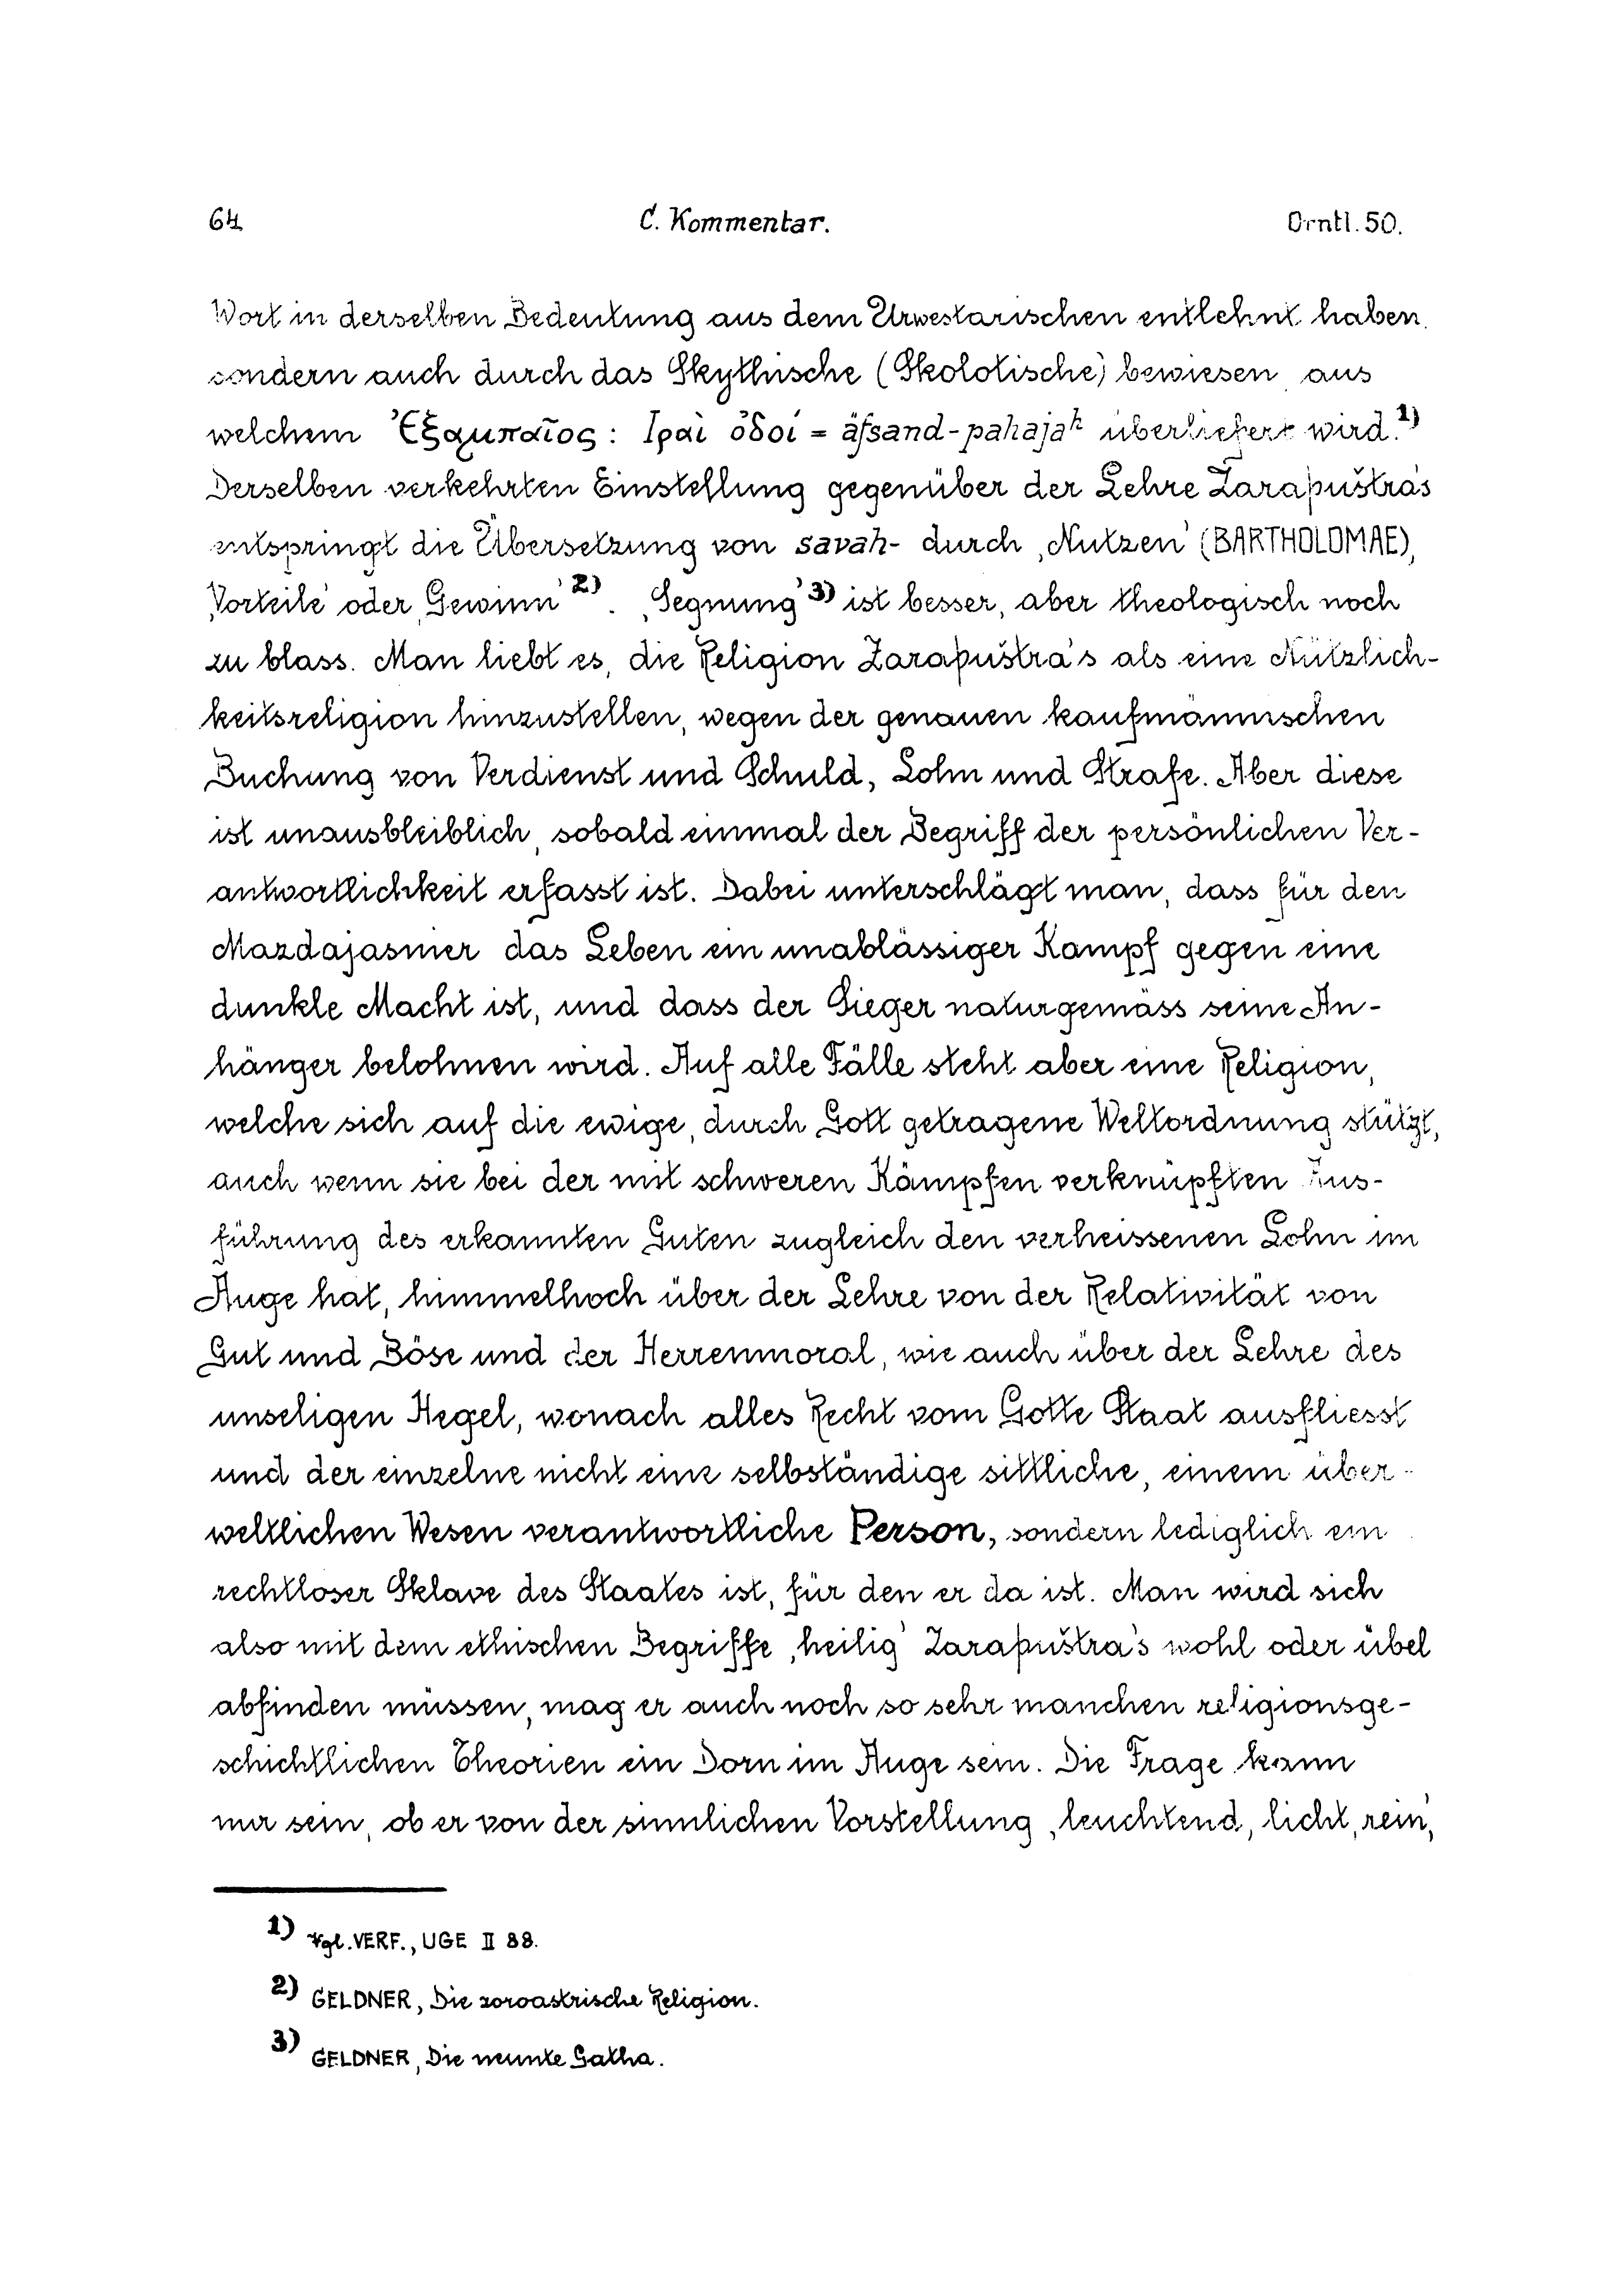 64 C. Kommentar. Orntl. 50.
Wort in derselben Bedeutung aus dem Urwestarischen entlehnt haben,
sondern auch durch das Skythische (Skolotische) bewiesen, aus
welchem Ἐξαμπαῖος: Ἱραὶ ὁδοί = äfsand-pahajaʰ überliefert wird.¹⁾
Derselben verkehrten Einstellung gegenüber der Lehre Zaraþuštra's
entspringt die Übersetzung von savah- durch ‚Nutzen' (BARTHOLOMAE),
‚Vorteile' oder ‚Gewinn'²⁾. ‚Segnung'³⁾ ist besser, aber theologisch noch
zu blass. Man liebt es, die Religion Zaraþuštra's als eine Nützlich-
keitsreligion hinzustellen, wegen der genauen kaufmännischen
Buchung von Verdienst und Schuld, Lohn und Strafe. Aber diese
ist unausbleiblich, sobald einmal der Begriff der persönlichen Ver-
antwortlichkeit erfasst ist. Dabei unterschlägt man, dass für den
Mazdajasnier das Leben ein unablässiger Kampf gegen eine
dunkle Macht ist, und dass der Sieger naturgemäss seine An-
hänger belohnen wird. Auf alle Fälle steht aber eine Religion,
welche sich auf die ewige, durch Gott getragene Weltordnung stützt,
auch wenn sie bei der mit schweren Kämpfen verknüpften Aus-
führung des erkannten Guten zugleich den verheissenen Lohn im
Auge hat, himmelhoch über der Lehre von der Relativität von
Gut und Böse und der Herrenmoral, wie auch über der Lehre des
unseligen Hegel, wonach alles Recht vom Gotte Staat ausfliesst
und der einzelne nicht eine selbständige sittliche, einem über-
weltlichen Wesen verantwortliche Person, sondern lediglich ein
rechtloser Sklave des Staates ist, für den er da ist. Man wird sich
also mit dem ethischen Begriffe ‚heilig' Zaraþuštra's wohl oder übel
abfinden müssen, mag er auch noch so sehr manchen religionsge-
schichtlichen Theorien ein Dorn im Auge sein. Die Frage kann
nur sein, ob er von der sinnlichen Vorstellung ‚leuchtend, licht, rein',
1) Vgl. VERF., UGE II 88.
2) GELDNER, Die zoroastrische Religion.
3) GELDNER, Die neunte Gatha.